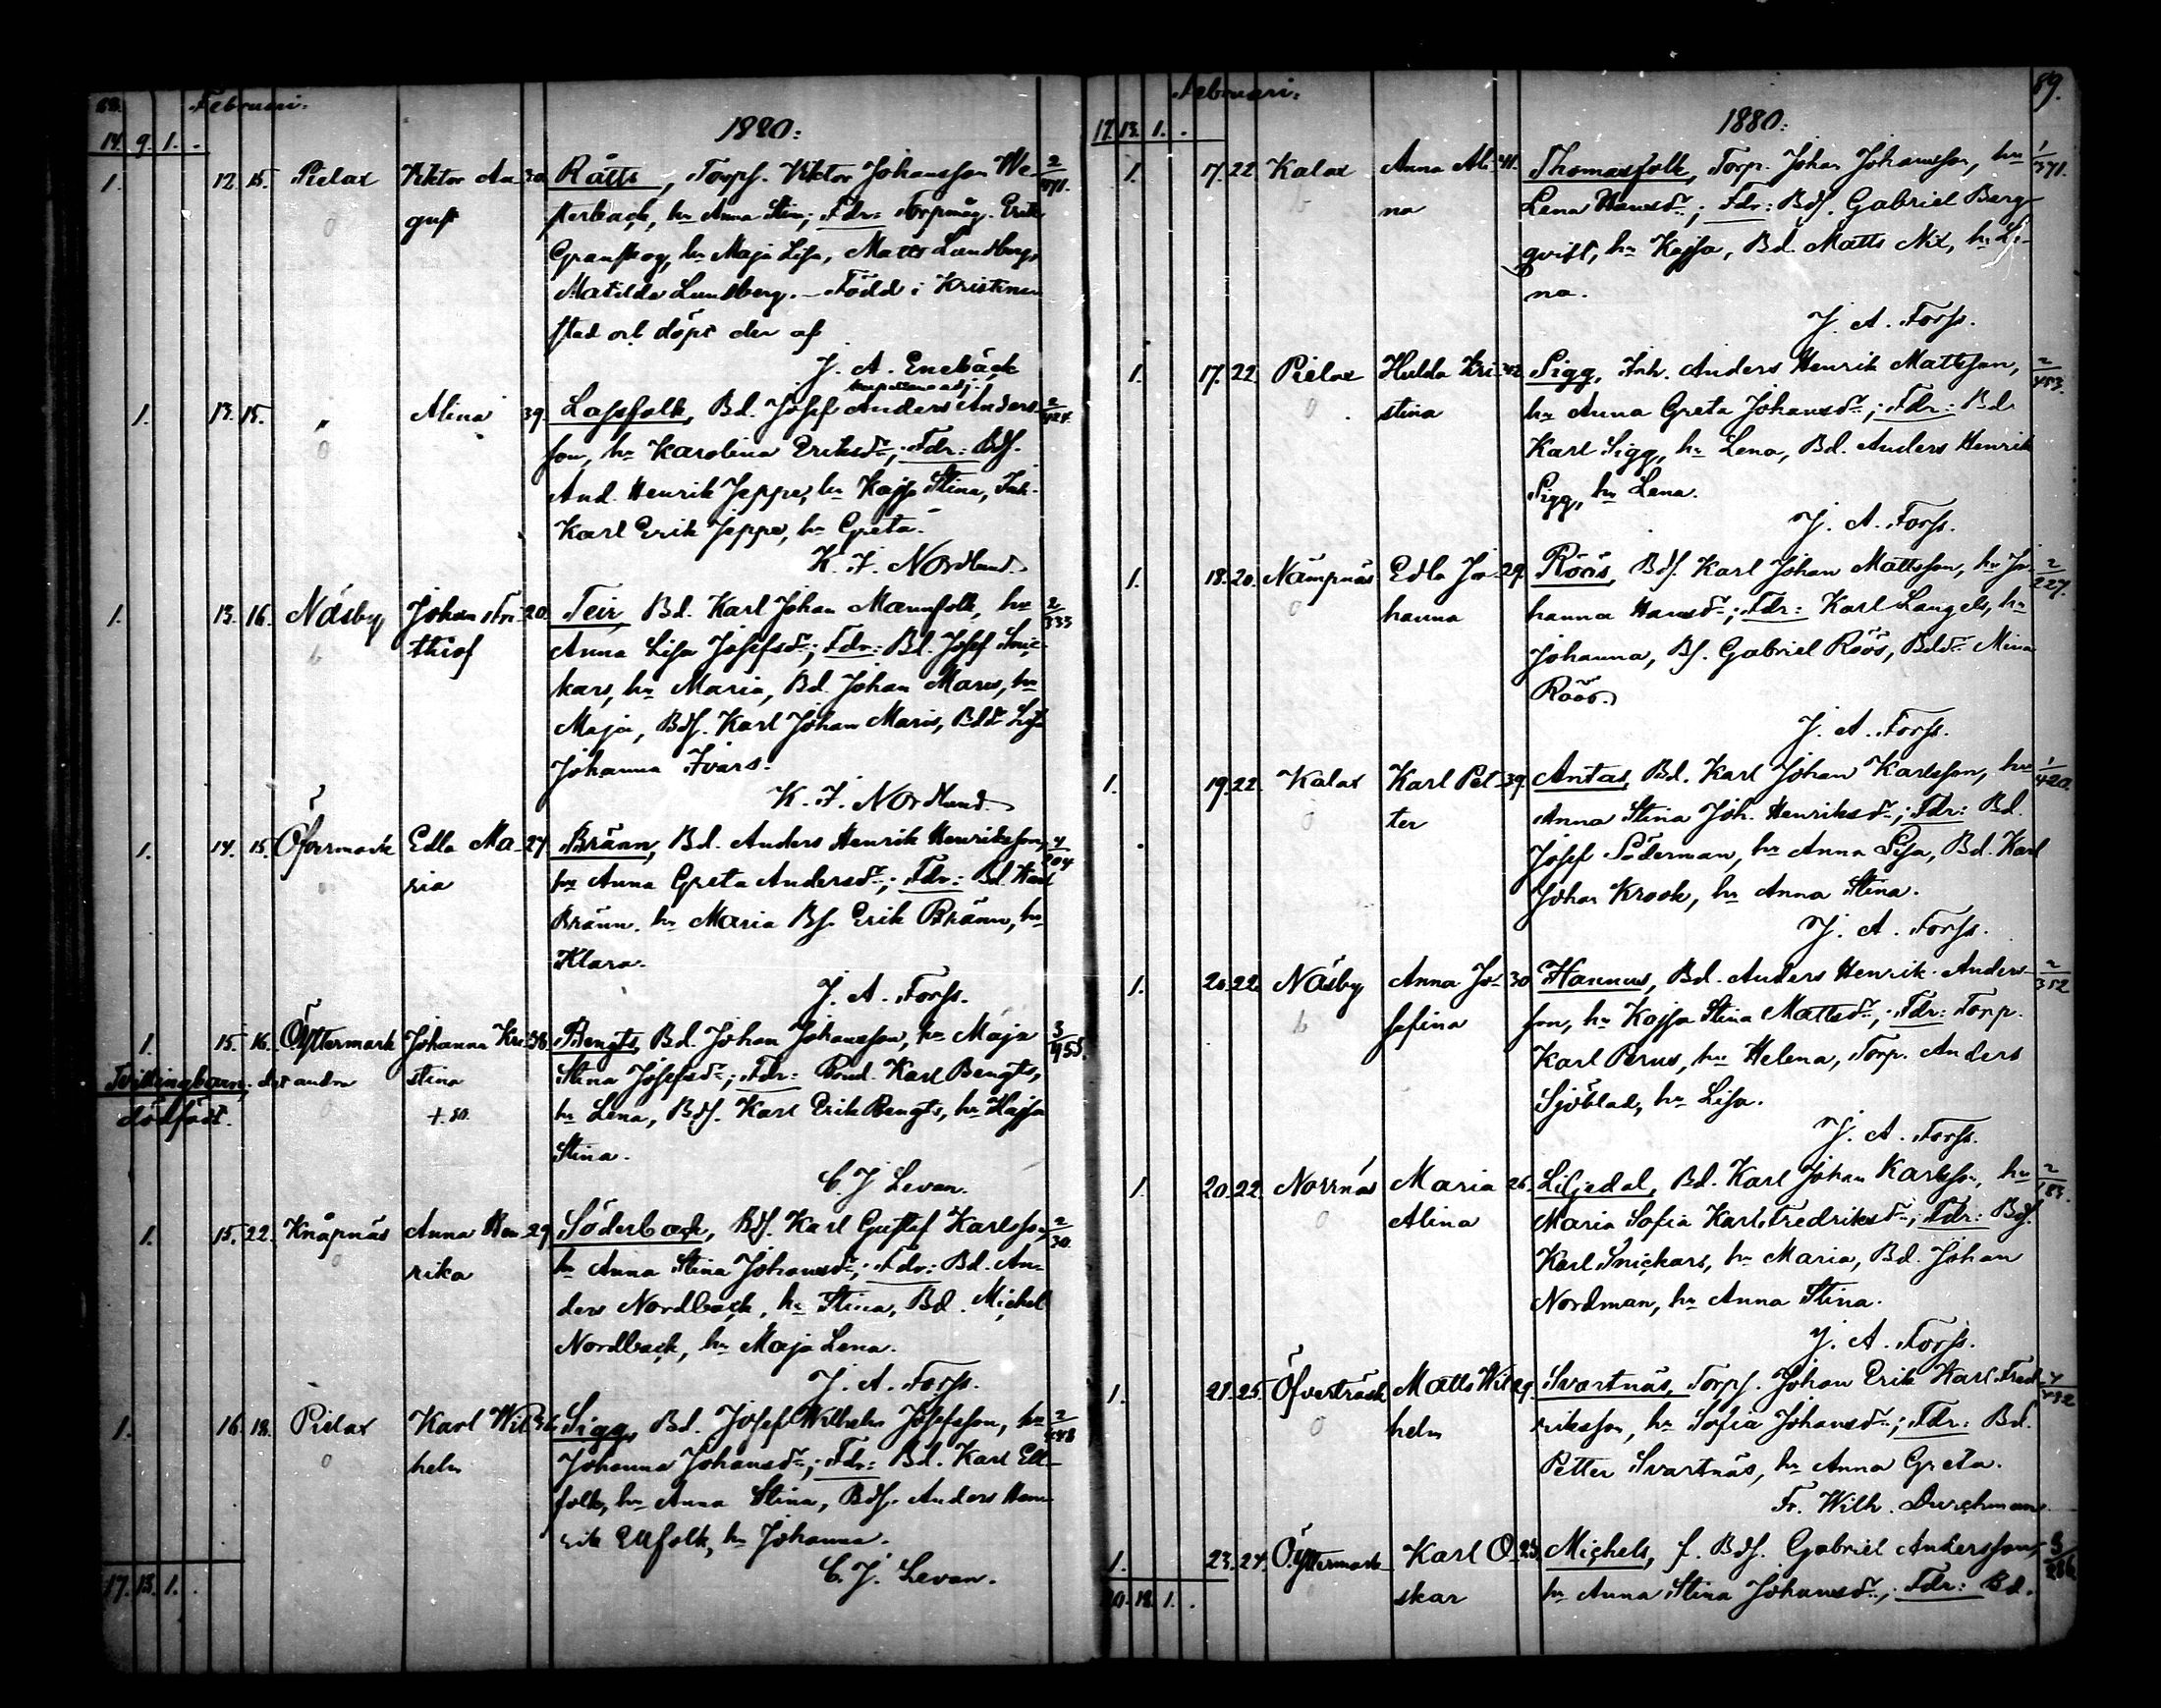 88. Februari.
1880:
14. 9. 1. .
1. 12. 15. Pielax Viktor Au- 30 Rätts, Torps. Viktor Johansson We- 2/471.
gust sterback, hu Anna Stina; Fdr: Torpmåg. Erik
Granskog, hu Maja Lisa, Matts Lundberg,
Matilda Lundberg. – Född i Kristine-
stad och döpt der af
J. A. Enebäck
1. 13. 15. " Alina 39. Lassfolk, Bd. Josef Anders Anders- 2/424.
son, hu Karolina Eriksdr; Fdr: Bds.
And. Henrik Jeppe, hu Kajsa Stina, Inh.
Karl Erik Jeppe, hu Greta.
K. F. Nordlund.
1. 13. 16. Näsby Johan Fri- 20. Teir, Bd. Karl Johan Mannfolk, hu 2/333
thiof Anna Lisa Josefsdr; Fdr: Bd. Josef Snic-
kars, hu Maria, Bd. Johan Marus, hu
Maja, Bds. Karl Johan Maris, Bddr Lisa
Johanna Ivars.
K. F. Nordlund.
1. 14. 15. Öfvermark Edla Ma- 27 Bränn, Bd. Anders Henrik Henriksson, 4/204
ria hu Anna Greta Andersdr; Fdr: Bd. Karl
Bränn, hu Maria Bs. Erik Bränn, hu
Klara.
J. A. Forss.
1. 15. 16. Öyttermark Johanna Kri- 38. Bengts, Bd. Johan Johansson, hu Maja 3/455.
Tvillingbarn; det andra stina Stina Josefsdr; Fdr: Bond. Karl Bengts,
dödfödt. †. 80. hu Lena, Bds. Karl Erik Bengts, hu Kajsa
Stina.
C. J. Levan.
1. 15. 22. Knåpnäs Anna Hen- 29. Söderback, Bds. Karl Gustaf Karlsson, 2/30.
rika hu Anna Stina Johansdr; Fdr: Bd. An-
ders Nordback, hu Stina, Bd. Michel
Nordback, hu Maja Lena.
J. A. Forss.
1. 16. 18. Pielax Karl Wil- 36. Sigg, Bd. Josef Wilhelm Josefsson, hu 2/448
helm Johanna Johansdr; Fdr: Bd. Karl Ell-
folk, hu Anna Stina, Bds. Anders Hen-
rik Ellfolk, hu Johanna.
C. J. Levan.
17. 13. 1. .
Februari. 89.
1880:
17. 13. 1. .
1. 17. 22 Kalax Anna Ali- 41. Thomasfolk, Torp. Johan Johansson, hu 1/371.
na Lena Hansdr; Fdr: Bds. Gabriel Berg-
qvist, hu Kajsa, Bd. Matts Nix, hu Le-
na.
J. A. Forss.
1. 17. 22 Pielax Hulda Kri- 32 Sigg, Inh. Anders Henrik Mattsson, 2/453.
stina hu Anna Greta Johansdr; Fdr: Bd.
Karl Sigg, hu Lena, Bd. Anders Henrik
Sigg, hu Lena.
J. A. Forss.
1. 18. 20. Nämpnäs Edla Jo- 29. Röös, Bds. Karl Johan Mattsson, hu Jo- 2/227.
hanna hanna Hansdr; Fdr: Karl Langels, hu
Johanna, Bs. Gabriel Röös, Bddr Mina
Röös.
J. A. Forss.
1. 19. 22. Kalax Karl Pet- 39. Antas, Bd. Karl Johan Karlsson, hu 1/420.
ter Anna Stina Joh. Henriksdr; Fdr: Bd.
Josef Söderman, hu Anna Lisa, Bd. Karl
Johan Krook, hu Anna Stina.
J. A. Forss.
1. 20. 22 Näsby Anna Jo- 30 Hannus, Bd. Anders Henrik Anders- 2/352
sefina son, hu Kajsa Stina Mattsdr; Fdr: Torp.
Karl Perus, hu Helena, Torp. Anders
Sjöblad, hu Lisa.
J. A. Forss.
1. 20. 22. Norrnäs Maria 26. Liljedal, Bd. Karl Johan Karlsson, hu 2/183.
Alina Maria Sofia Karl Fredriksdr; Fdr: Bds.
Karl Snickars, hu Maria, Bd. Johan
Nordman, hu Anna Stina.
J. A. Forss.
1. 21. 25. Öfverträsk Matts Wil- 29. Svartnäs, Torps. Johan Erik Karl Fred-
helm riksson, hu Sofia Johansdr; Fdr: Bd.
Petter Svartnäs, hu Anna Greta.
Fr. Wilh. Durchman.
1. 23. 24. Öyttermark Karl O- 25. Michels, f. Bds. Gabriel Andersson, 3/286
skar hu Anna Stina Johansdr; Fdr: Bd.
20. 18. 1. .